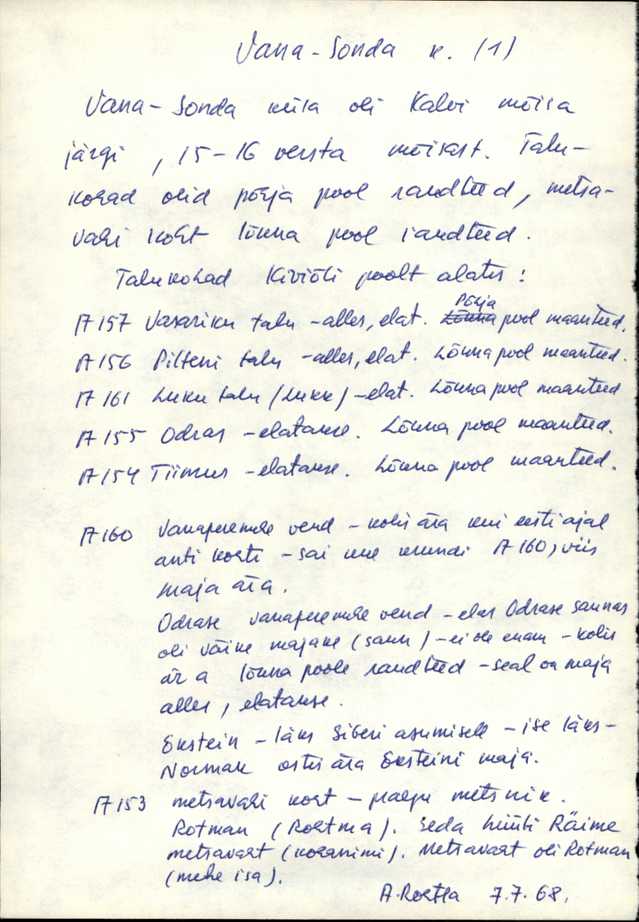 Vana-Sonda k. (1)
Vana-Sonda küla oli Kalvi mõisa
järgi, 15-16 versta mõisast. Talu-
kohad olid põhja pool raudteed, metsa-
vahi koht lõuna pool raudteed.
Talukohad Kiviõli poolt alates:
A 157 Vasariku talu - alles, elat. Põhja pool maanteed.
A 156 Pilteni talu - alles, elat. Lõuna pool maanteed.
A 161 Luku talu (Lukk) - elat. Lõuna pool maanteed
A 155 Odras - elatakse. Lõuna pool maanteed.
A 154 Tiimus - elatakse. Lõuna pool maanteed.
A 160 Vanaperemehe vend - kolis ära kui eesti ajal
anti koht - sai uue A 160, viis
maja ära.
Odrase vanaperemehe vend - elas Odrase saunas
oli väike majake (saun) - ei ole enam - kolis
ära lõuna poole raudteed - seal on maja
alles, elatakse.
Ekstein - läks Siberi asumisele - ise läks -
Normak ostis ära Eksteini maja.
A 153 metsavahi koht - praegu metsnik.
Rotman (Rohtma). Seda hüüti Räime
metsavaht (kohanimi). Metsavaht oli Rotman
(mehe isa).
7.7.68.